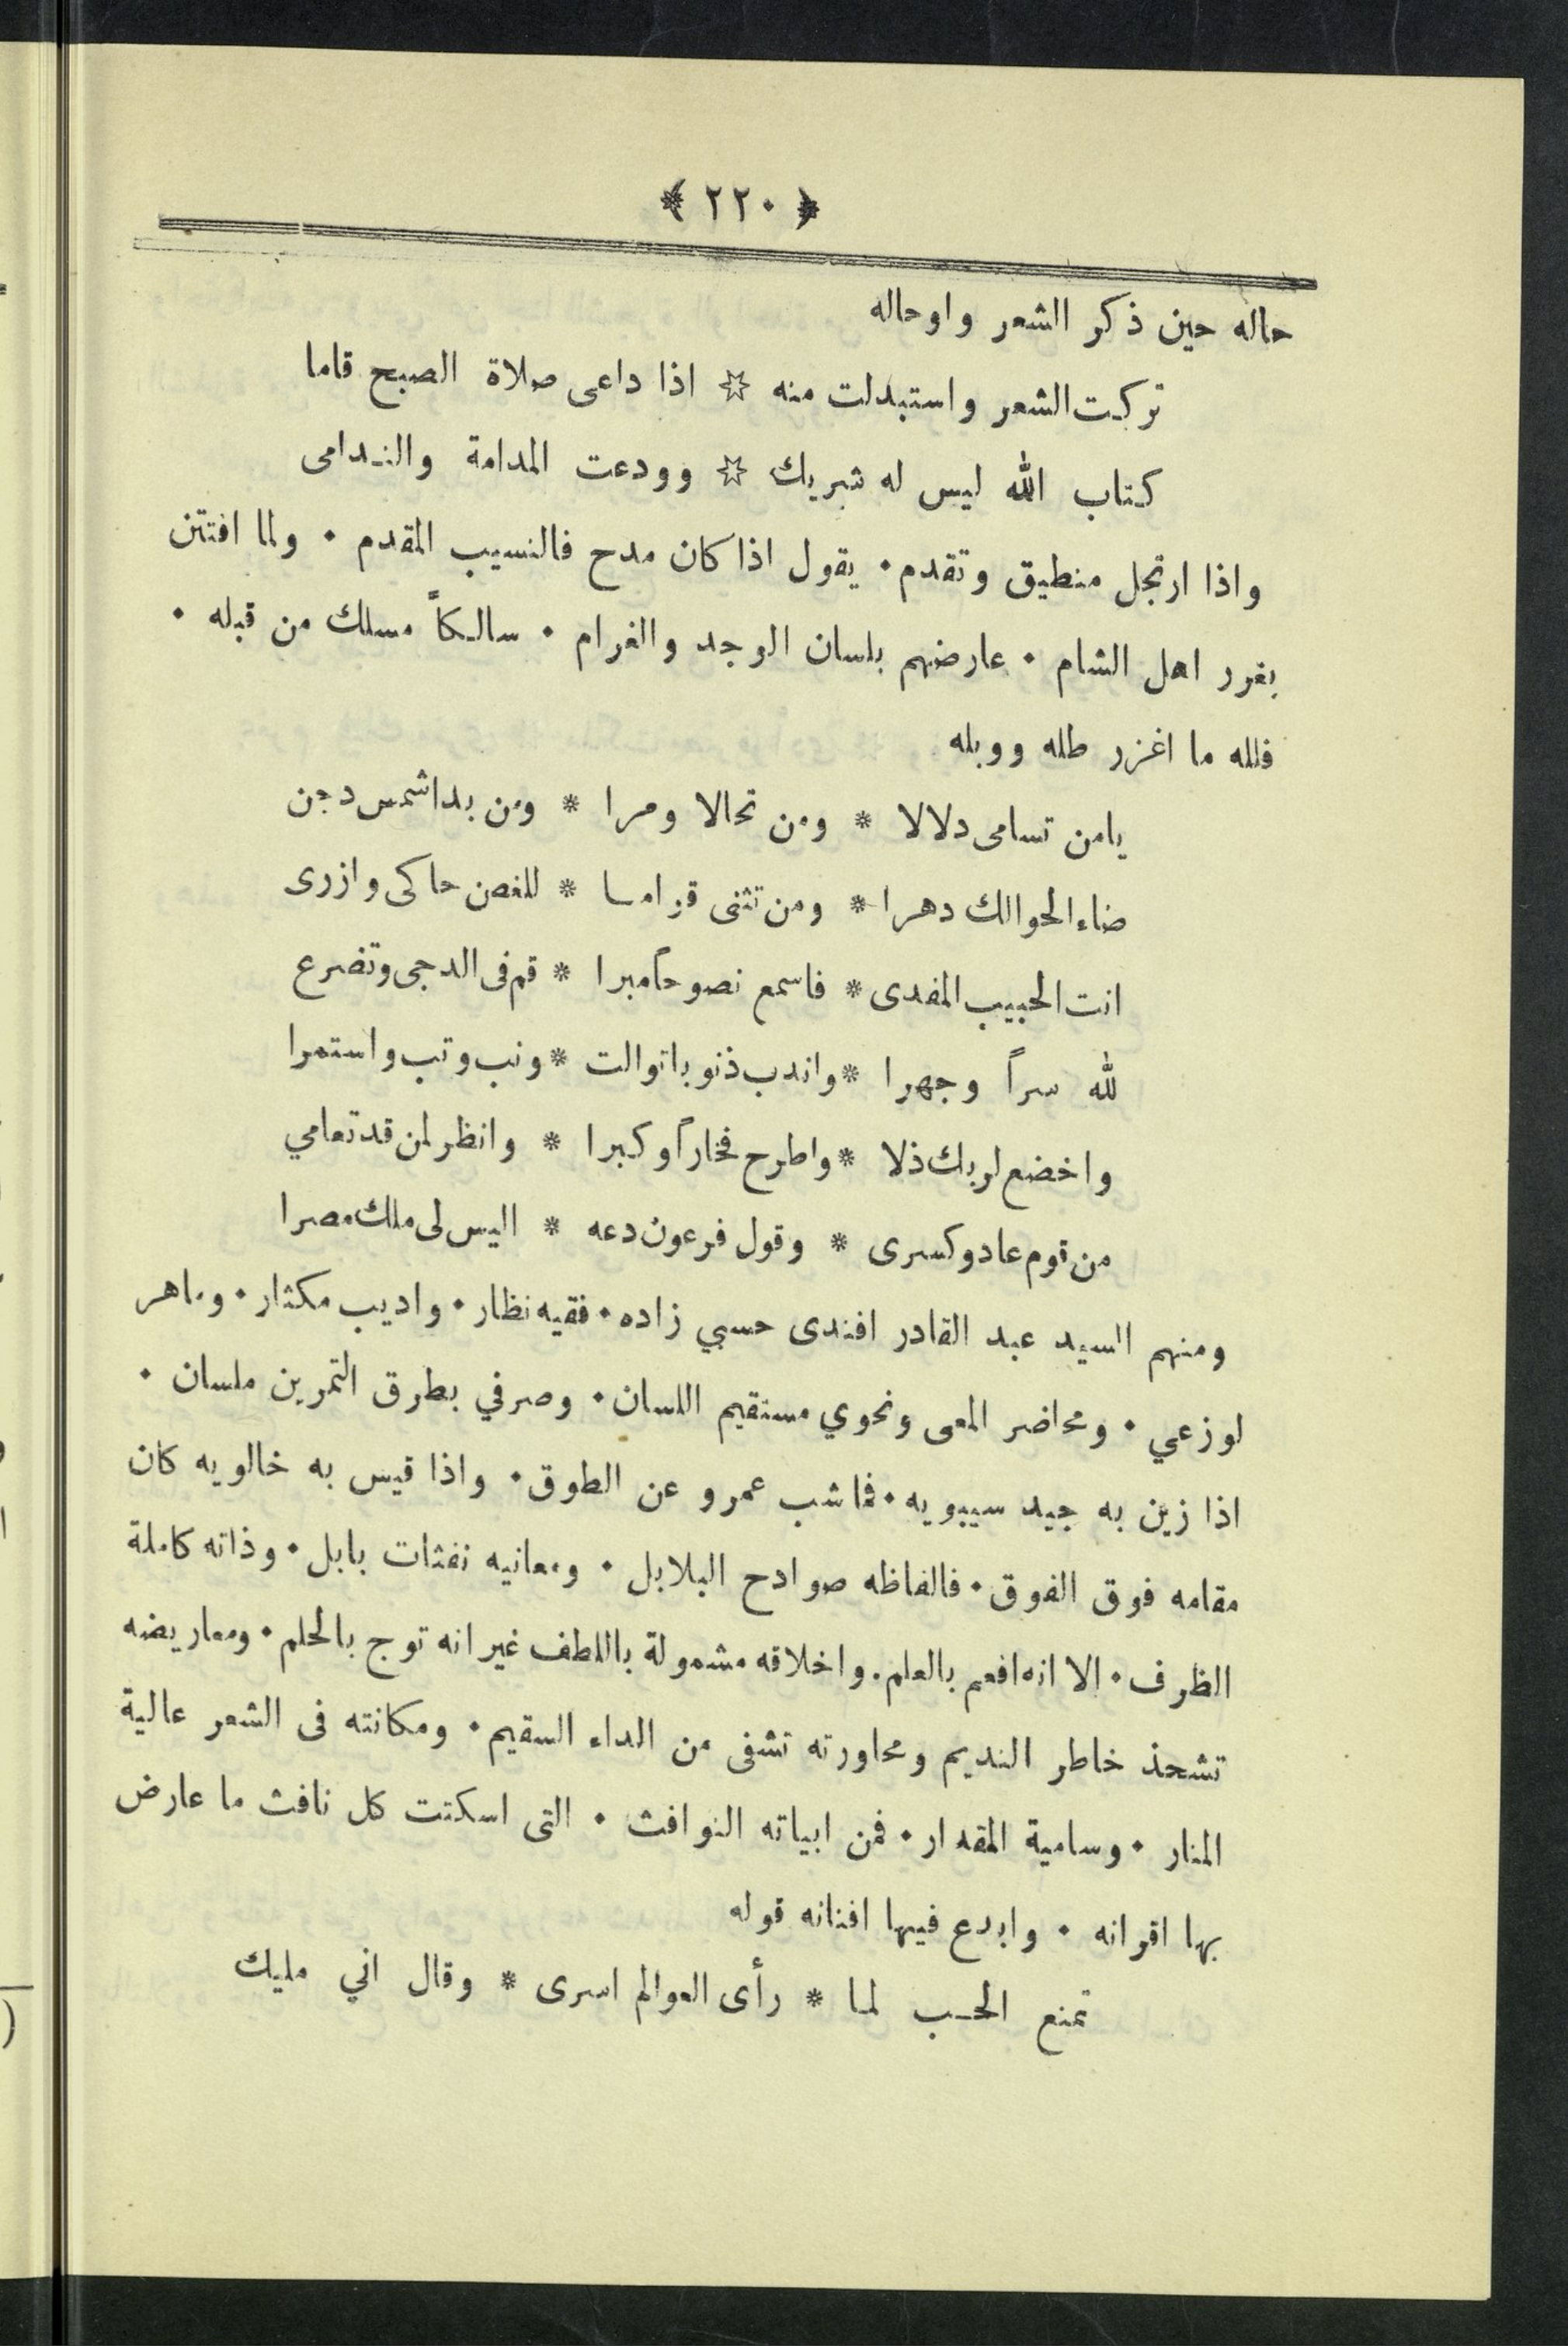 ﴿ ٢٢٠ ﴾
حاله حين ذكر الشعر واوحاله
تركت الشعر واستبدلت منه ☆ اذا داعى صلاة الصبح قاما
كتاب الله ليس له شريك ☆ وودعت المدامة والندامى
واذا ارتجل منطيق وتقدم٠ يقول اذا كان مدح فالنسيب المقدم ٠ ولما افتتن
بغرر اهل الشام ٠ عارضهم بلسان الوجد والغرام ٠ سالكاً مسلك من قبله ٠
فلله ما اغزر طله ووبله
يامن تسامى دلالا * ومن تحالا ومرا * ومن بدا شمس دجن
ضاء الحوالك دهرا * ومن تثنى قواما * للغصن حاكى وازرى
انت الحبيب المفدى * فاسمع نصوحاً مبرا * قم فى الدجى وتضرع
لله سراً وجهرا * واندب ذنوبا توالت * ونب وتب واستمرا
واخضع لربك ذلا * واطرح فخاراً وكبرا * وانظر لمن قد تعامي
من قوم عاد وكسرى * وقول فرعون دعه * اليس لى ملك مصرا
ومنهم السيد عبد القادر افندى حسبي زاده٠ فقيه نظار٠ واديب مكثار٠ وماهر
لوزعي ٠ ومحاضر المعى ونحوي مستقيم اللسان٠ وصرفي بطرق التمرين ملسان ٠
اذا زين به جيد سيبويه٠ فما شب عمرو عن الطوق٠ واذا قيس به خالويه كان
مقامه فوق الفوق٠ فالفاظه صوادح البلابل ٠ ومعانيه نفثات بابل٠ وذاته كاملة
الظرف٠ الا انه افعم بالعلم. واخلاقه مشمولة باللطف غير انه توج بالحلم٠ ومعاريضه
تشحذ خاطر النديم ومحاورته تشفى من الداء السقيم٠ ومكانته فى الشعر عالية
المنار ٠ وسامية المقدار٠ فمن ابياته النوافث ٠ التى اسكتت كل نافث ما عارض
بها اقرانه ٠ وابدع فيها افنانه قوله
تمنع الحب لما * رأى العوالم اسرى * وقال اني مليك